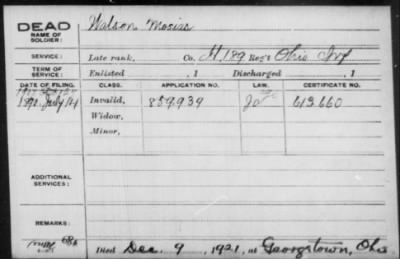 DEAD
NAME OF SOLDIER:
Watson, Mosias
SERVICE:
Late rank, Co. H, 189 Reg't Ohio Inf
TERM OF SERVICE:
Enlisted , 1 Discharged , 1
DATE OF FILING. CLASS. APPLICATION NO. LAW. CERTIFICATE NO.
1890. July 14 Invalid, 859939 613.660
Widow,
Minor,
ADDITIONAL SERVICES:
REMARKS:
Died Dec. 9, 1921, at Georgetown, Ohio